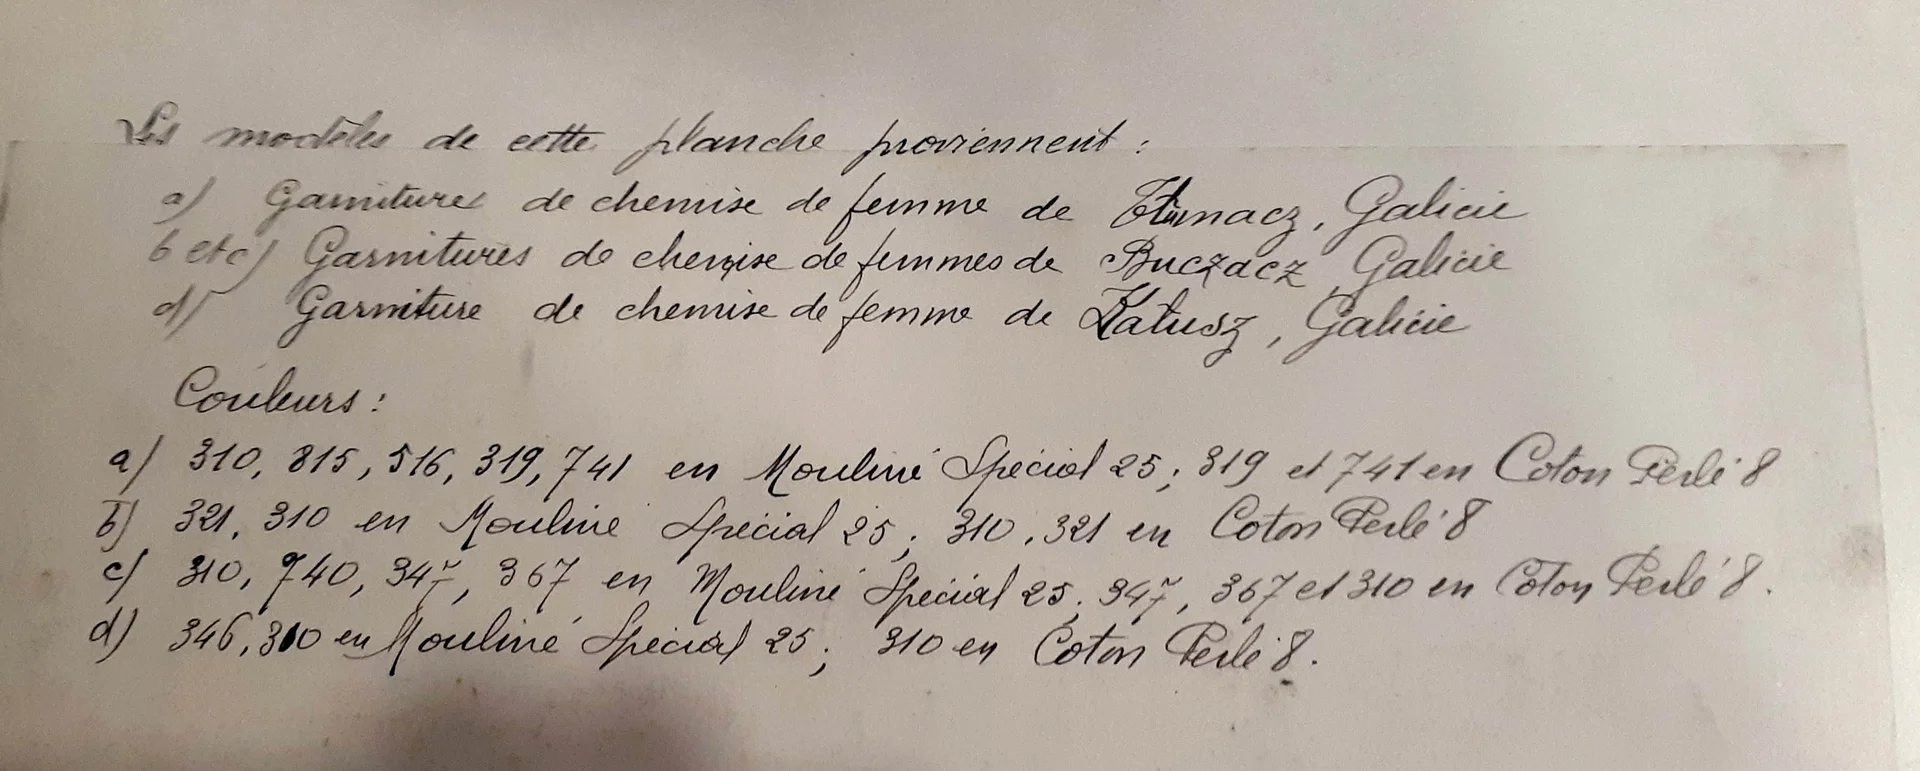 Les modèles de cette planche proviennent :
a) Garnitures de chemise de femme de Tłumacz, Galicie
b et c) Garnitures de chemise de femmes de Buczacz, Galicie
d) Garniture de chemise de femme de Kałusz, Galicie
Couleurs :
a) 310, 815, 516, 319, 741 en Mouliné Spécial 25; 319 et 741 en Coton Perlé 8
b) 321, 310 en Mouliné Spécial 25; 310, 321 en Coton Perlé 8
c) 310, 740, 347, 367 en Mouliné Spécial 25; 347, 367 et 310 en Coton Perlé 8.
d) 346, 310 en Mouliné Spécial 25; 310 en Coton Perlé 8.